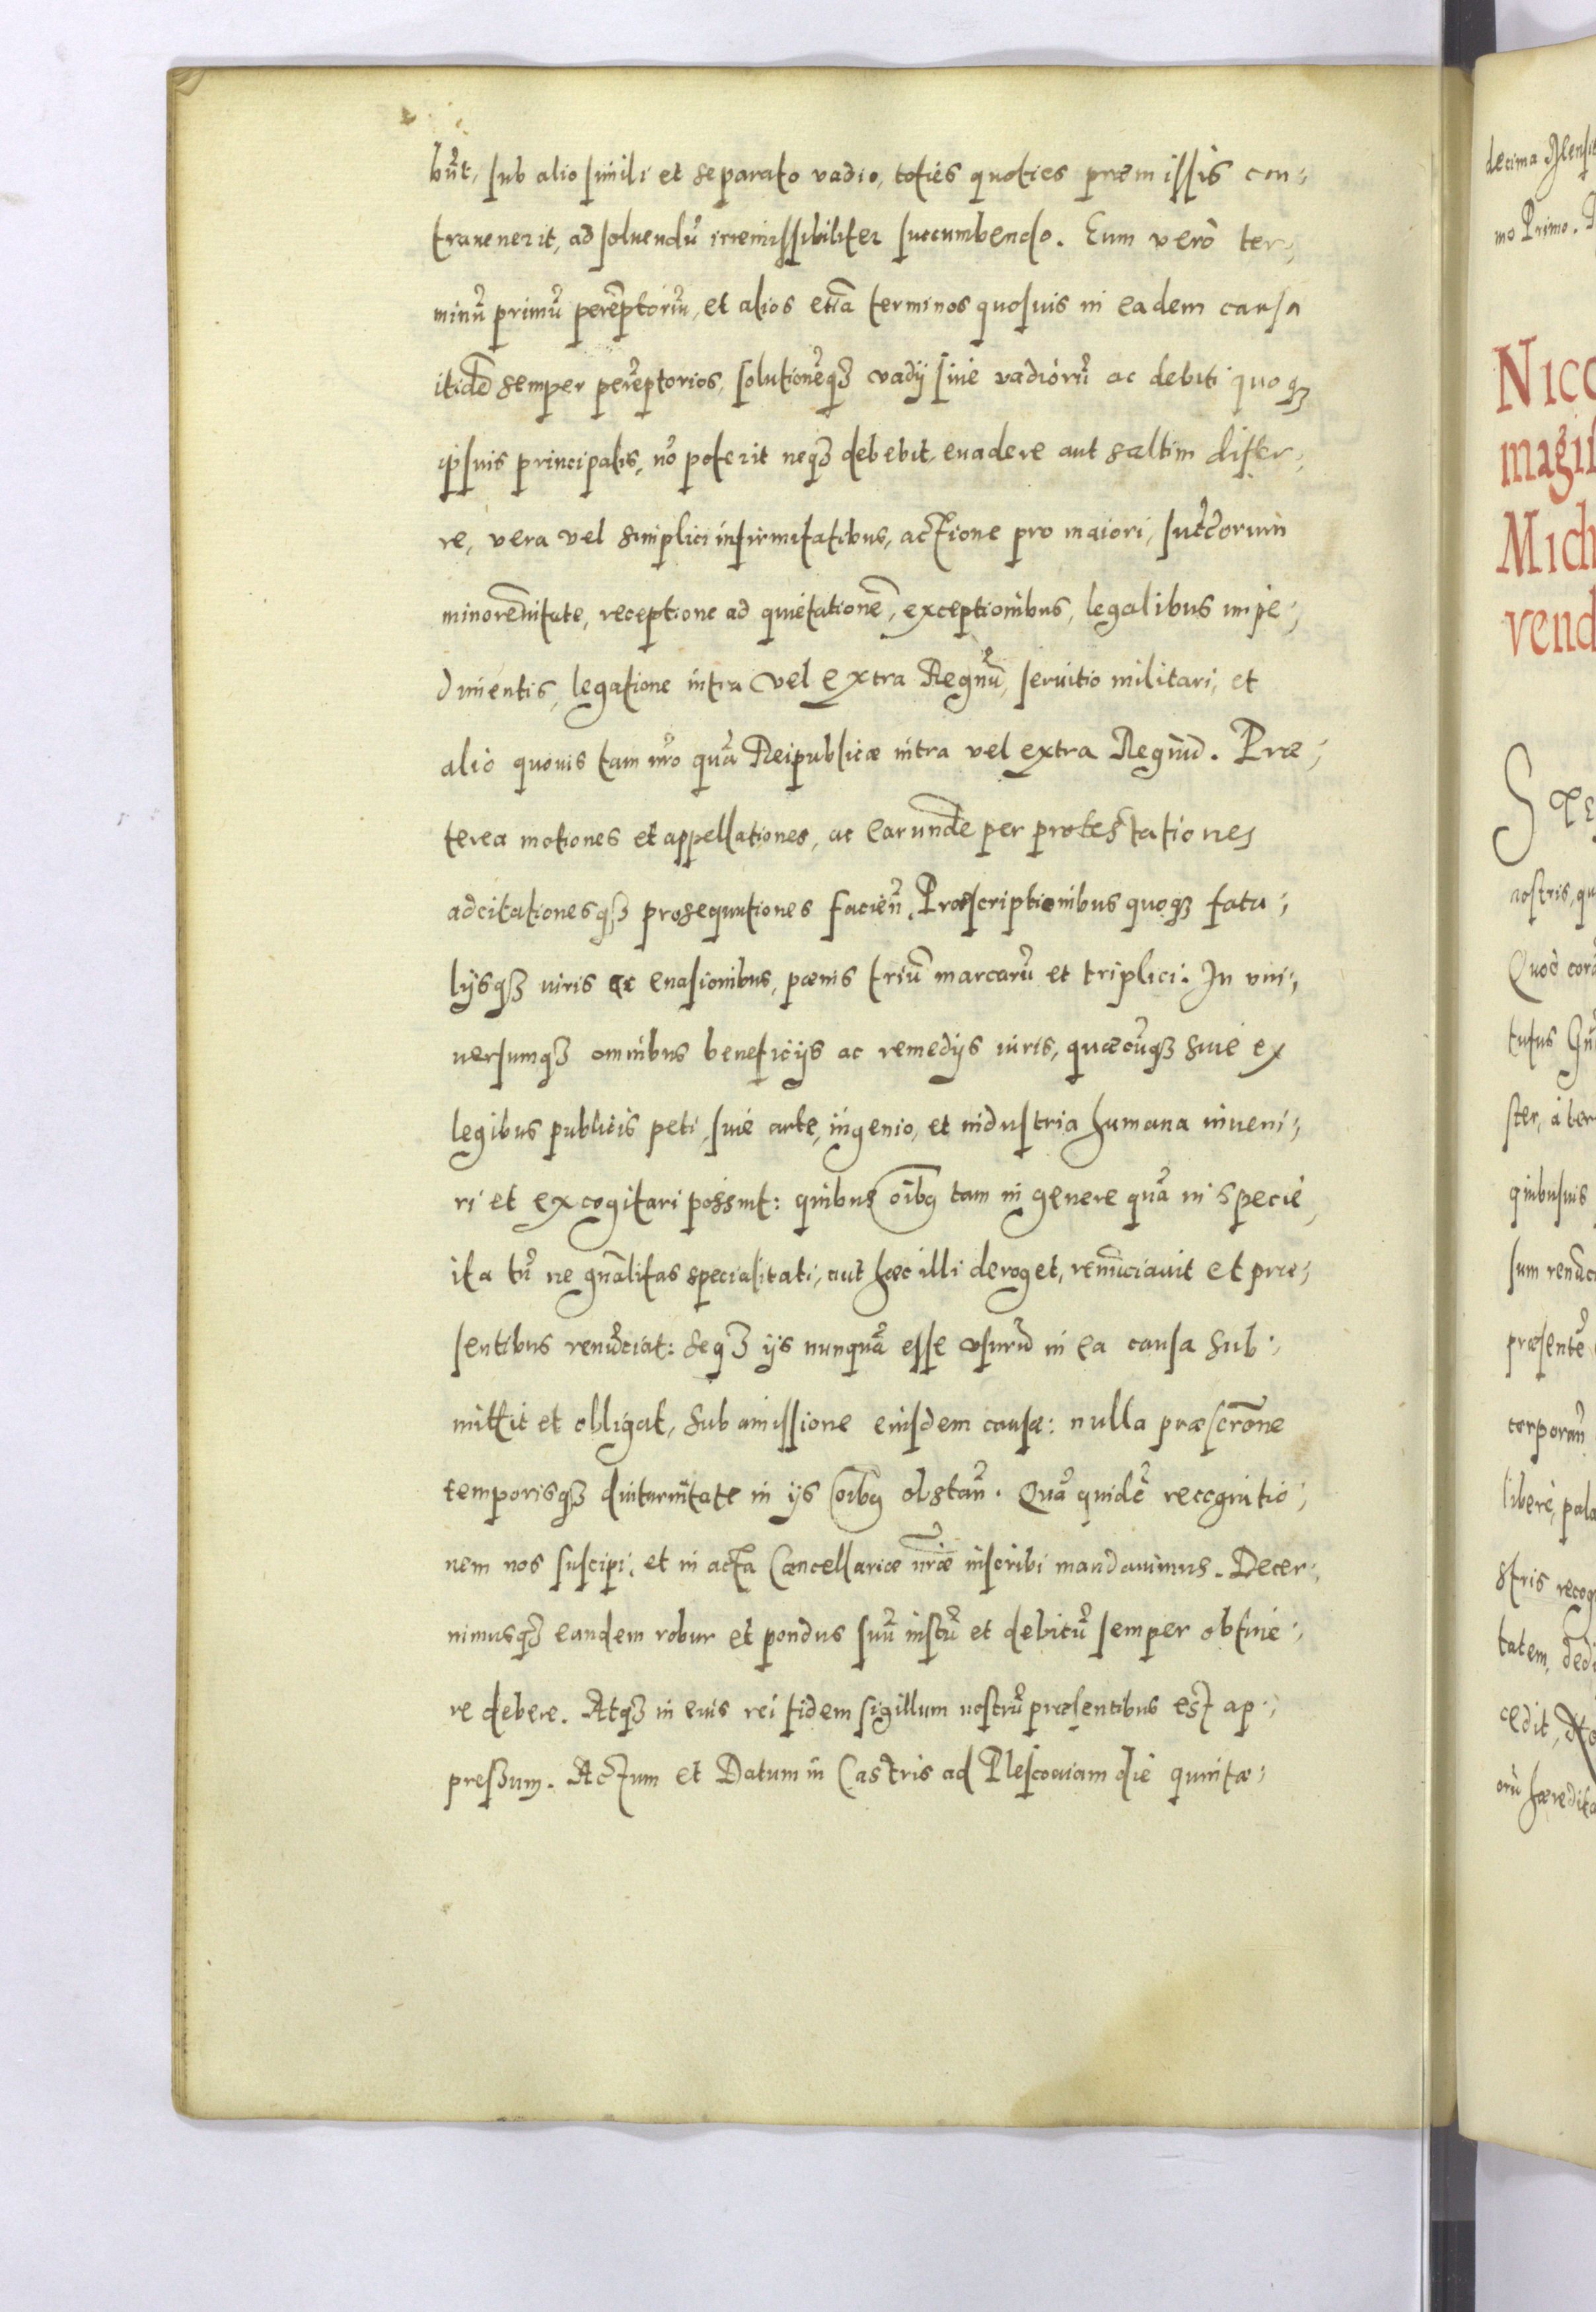 bũt, sub alio simili et separato vadio, toties quoties præmissis con-
travenerit, ad soluendũ irremissibiliter succumbendo. Eum verò ter-
minũ primũ perẽptoriũ, et alios etiã terminos quosuis in eadem causa
itidẽ semper perẽptorios, solutionẽqȝ vadij siue vadiorũ ac debiti quoqȝ
ipsius principalis, nõ poterit neqȝ debebit, euadere aut saltim differ-
re, vera vel simplici infirmitatibus, actione pro maiori, succẽorum
minorẽnitate, receptione ad quietationẽ, exceptionibus, legalibus impe-
dimentis, legatione intra vel extra Regnũ, seruitio militari, et
alio quouis tam nr̃o quã Reipublicæ intra vel extra Regnũ. Præ-
terea motiones et appellationes, ac earundẽ per protestationes
adcitationesqȝ prosequutiones facieñ. Præscriptionibus quoqȝ fata-
lijsqȝ iuris ac euasionibus, pænis triũ marcarũ et triplici. In vni-
uersumqȝ omnibus beneficijs ac remedijs iuris, quæcũqȝ siue ex
legibus publicis peti, siue arte, ingenio, et industria humana inueni-
ri et excogitari possint: quibus oĩbq tam in genere quã in specie,
ita tñ ne gñalitas specialitati, aut hæc illi deroget, renũciauit et præ-
sentibus renũciat: seqȝ ijs nunquã esse vsurũ in ea causa sub-
mittit et obligat, sub amissione eiusdem causæ: nulla præscr̃one
temporisqȝ diuturnitate in ijs oĩbq obstañ. Quã quidẽ recognitio-
nem nos suscipi, et in acta Cancellariæ nr̃æ inscribi mandauimus. Decer-
nimusqȝ eandem robur et pondus suũ iustũ et debitũ semper obtine-
re debere. Atqȝ in eius rei fidem sigillum nostrũ præsentibus est ap-
pressum. Actum et Datum in Castris ad Plescouiam die quinta-
decima
mo Primo.
NICO
magis
MICH
vend
nostris, qu
Quod cor
ster, à ter
quibusuis
præsentẽ
corporañ
liberè, pala
stris recog
tatem, dedi
cedit,
orũ hæredita